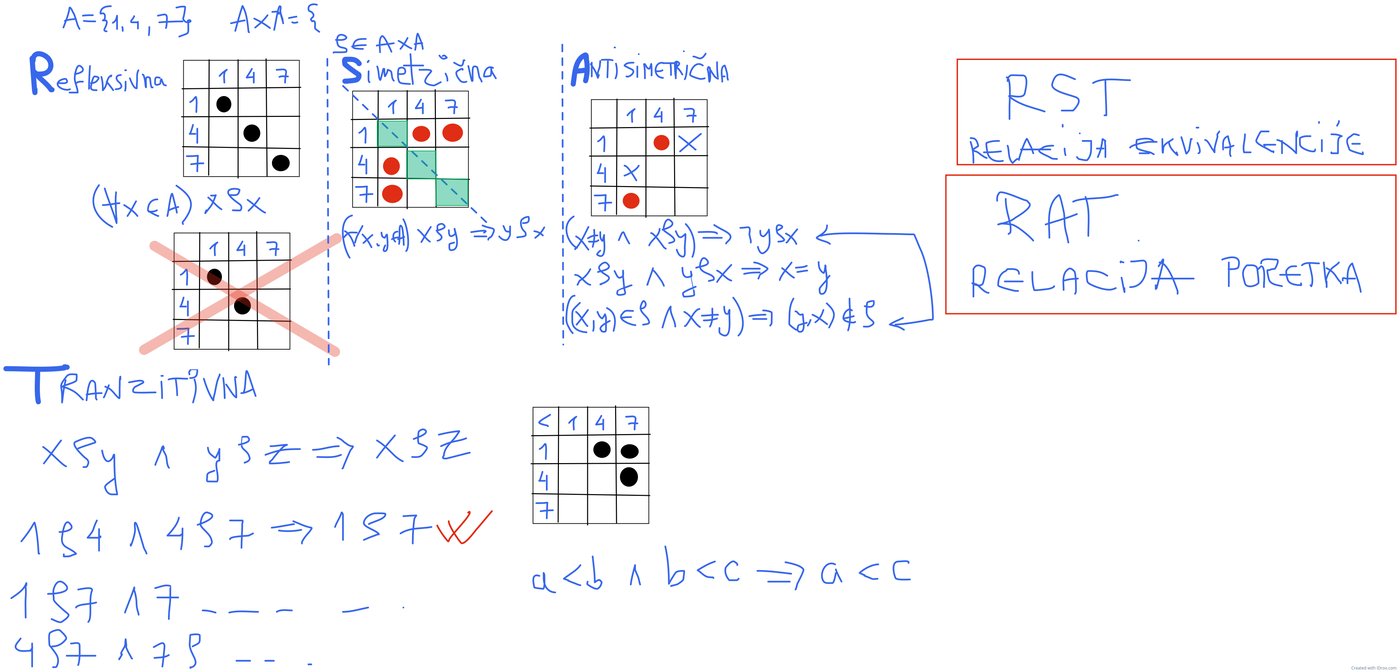 A={1,4,7} A×A={
ρ∈A×A
Refleksivna
1 4 7
1
4
7
(∀x∈A) xρx
1 4 7
1
4
7
Simetrična
1 4 7
1
4
7
(∀x,y∈A) xρy ⇒ yρx
ANTISIMETRIČNA
1 4 7
1 X
4 X
7
(x≠y ∧ xρy) ⇒ ¬yρx
xρy ∧ yρx ⇒ x=y
((x,y)∈ρ ∧ x≠y) ⇒ (y,x)∉ρ
RST
RELACIJA EKVIVALENCIJE
RAT
RELACIJA PORETKA
TRANZITIVNA
xρy ∧ yρz ⇒ xρz
1ρ4 ∧ 4ρ7 ⇒ 1ρ7 ✓
1ρ7 ∧ 7 ---- -
4ρ7 ∧ 7ρ -- .
< 1 4 7
1
4
7
a<b ∧ b<c ⇒ a<c
Created with IDroo.com